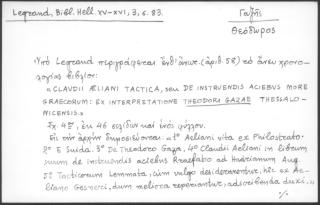 Legrand, Bibl. Hell. XV-XVI, 3, σ. 83.
Γαζῆς
Θεόδωρος
Ὑπὸ Legrand περιγράφεται ἐνθ' ἄνωτ. (ἀριθ. 58) τὸ ἄνευ χρονο-
λογίας βιβλίον:
"CLAUDII ÆLIANI TACTICA, seu DE INSTRUENDIS ACIEBUS MORE
GRAECORUM: EX INTERPRETATIONE THEODORI GAZAE THESSALO-
NICENSIS."
Σχ. 4ον, ἐκ 46 σελίδων καὶ ἑνὸς φύλλου.
Εἰς τὴν ἀρχὴν δημοσιεύονται: "1º Aeliani vita ex Philostrato.
2º E Suida. 3º De Theodoro Gaza, 4º Claudii Aeliani in librum
suum de instruendis aciebus Praefatio ad Hadrianum Aug.
5º Tacticorum Lemmata, cùm vulgo desiderarentur, hîc ex Ae-
liano Gesnerei, dum meliora reperiantur, adscribenda duxi."
%